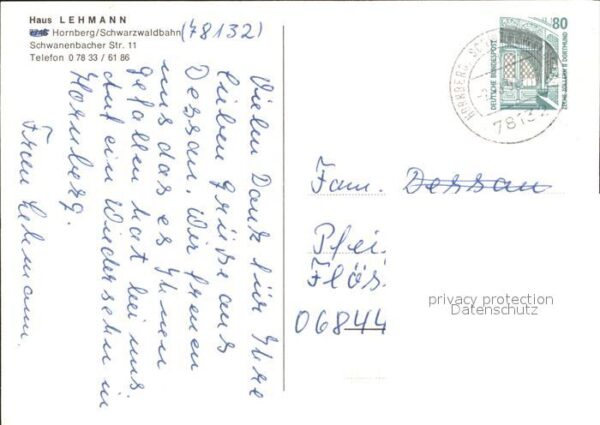 Haus LEHMANN
Hornberg/Schwarzwaldbahn (78132)
Schwanenbacher Str. 11
Telefon 0 78 33 / 61 86
Vielen Dank für Ihre
lieben Grüße aus
Dessau. Wir freuen
uns das es Ihnen
gefallen hat bei uns.
Auf ein Wiedersehn in
Hornberg.
Frau Lehmann.
80
DEUTSCHE BUNDESPOST
ZECHE ZOLLERN II DORTMUND
HORNBERG
7813
Fam. Dessau
Pfei
Flös
06844
privacy protection
Datenschutz